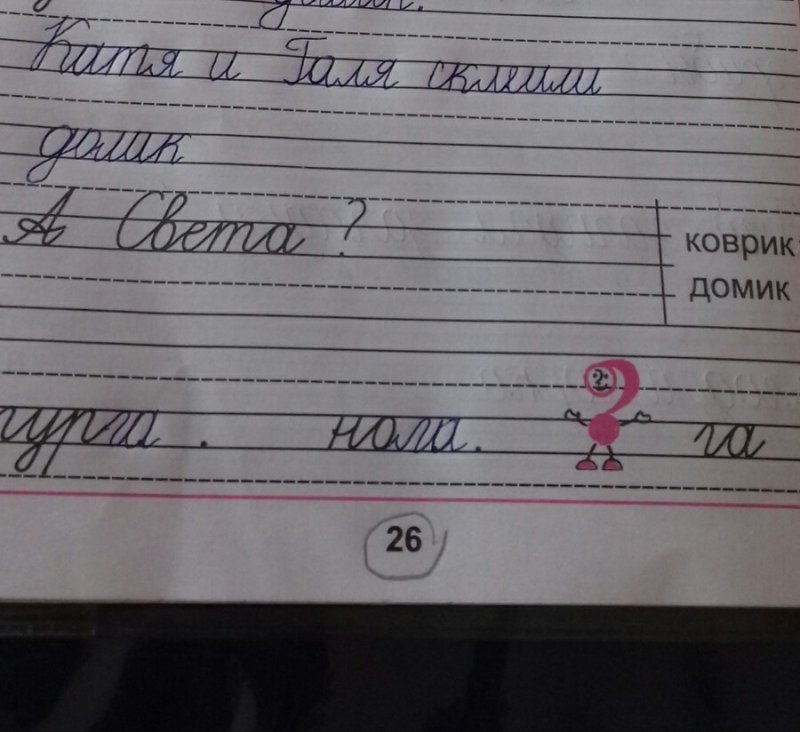 Катя и Галя склеили
домик
А Света ?
коврик
домик
пурга . га
26